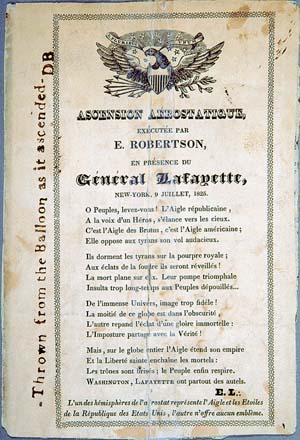 ASCENSION AEROSTATIQUE,
EXÉCUTÉE PAR
E. ROBERTSON,
EN PRÉSENCE DU
Général Lafayette,
NEW-YORK, 9 JUILLET, 1825.
O Peuples, levez-vous! L'Aigle républicaine,
A la voix d'un Héros, s'élance vers les cieux.
C'est l'Aigle des Brutus, c'est l'Aigle américaine;
Elle oppose aux tyrans son vol audacieux.
Ils dorment les tyrans sur la pourpre royale;
Aux éclats de la foudre ils seront réveillés!
La mort plane sur eux. Leur pompe triomphale
Insulta trop long-temps aux Peuples dépouillés...
De l'immense Univers, image trop fidèle!
La moitié de ce globe est dans l'obscurité,
L'autre repand l'éclat d'une gloire immortelle:
L'Imposture partage avec la Vérité!
Mais, sur le globe entier l'Aigle étend son empire
Et la Liberté sainte enchaîne les mortels:
Les trônes sont brisés; le Peuple enfin respire.
WASHINGTON, LAFAYETTE ont partout des autels.
E. L.
L'un des hémisphères de l'aërostat représente l'Aigle et les Etoiles
de la République des Etats Unis, l'autre n'offre aucun emblème.
-Thrown from the Balloon as it ascended-DB